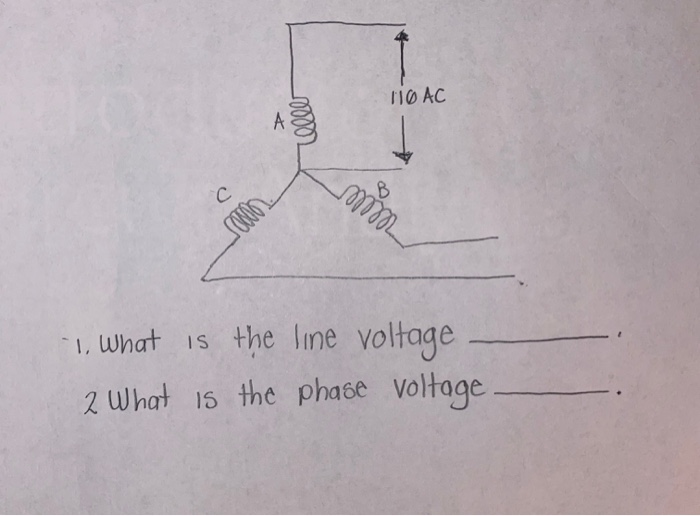 110 AC
A
C
B
1. What is the line voltage ________.
2 What is the phase voltage ________.